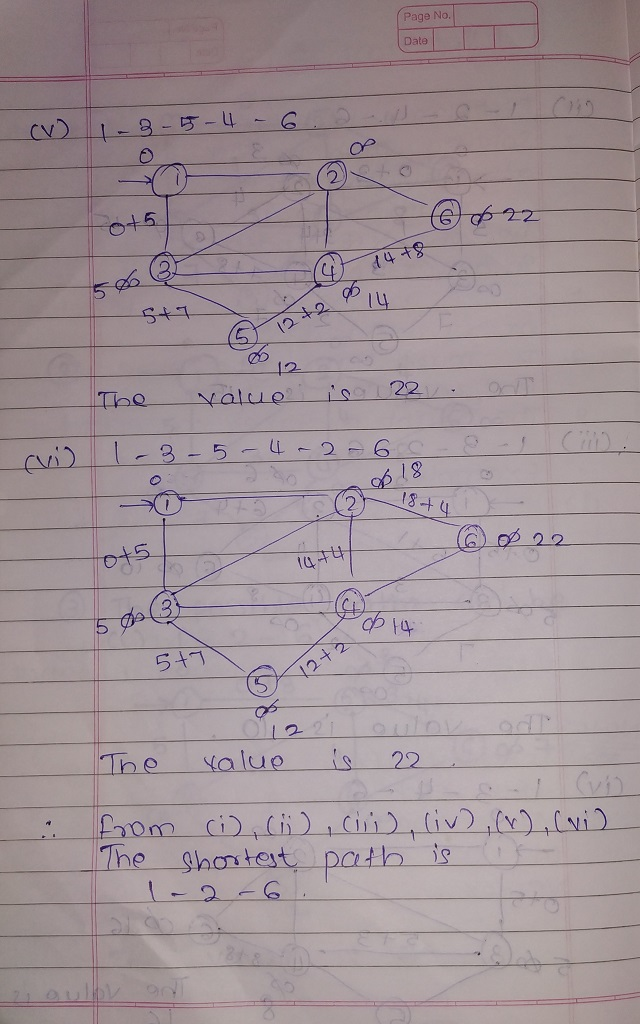 Page No.
Date
(v) 1 - 3 - 5 - 4 - 6
0 ∞
1 2
0+5 6 ∞ 22
5 ∞ 3 4 14+8
5+7 12+2 ∞ 14
5
∞ 12
The value is 22 .
(vi) 1 - 3 - 5 - 4 - 2 - 6
0 ∞ 18
1 2 18+4
0+5 14+4 6 ∞ 22
5 ∞ 3 4
∞ 14
5+7 12+2
5
∞
12
The value is 22 .
∴ from (i), (ii), (iii), (iv), (v), (vi)
The shortest path is
1 - 2 - 6 .